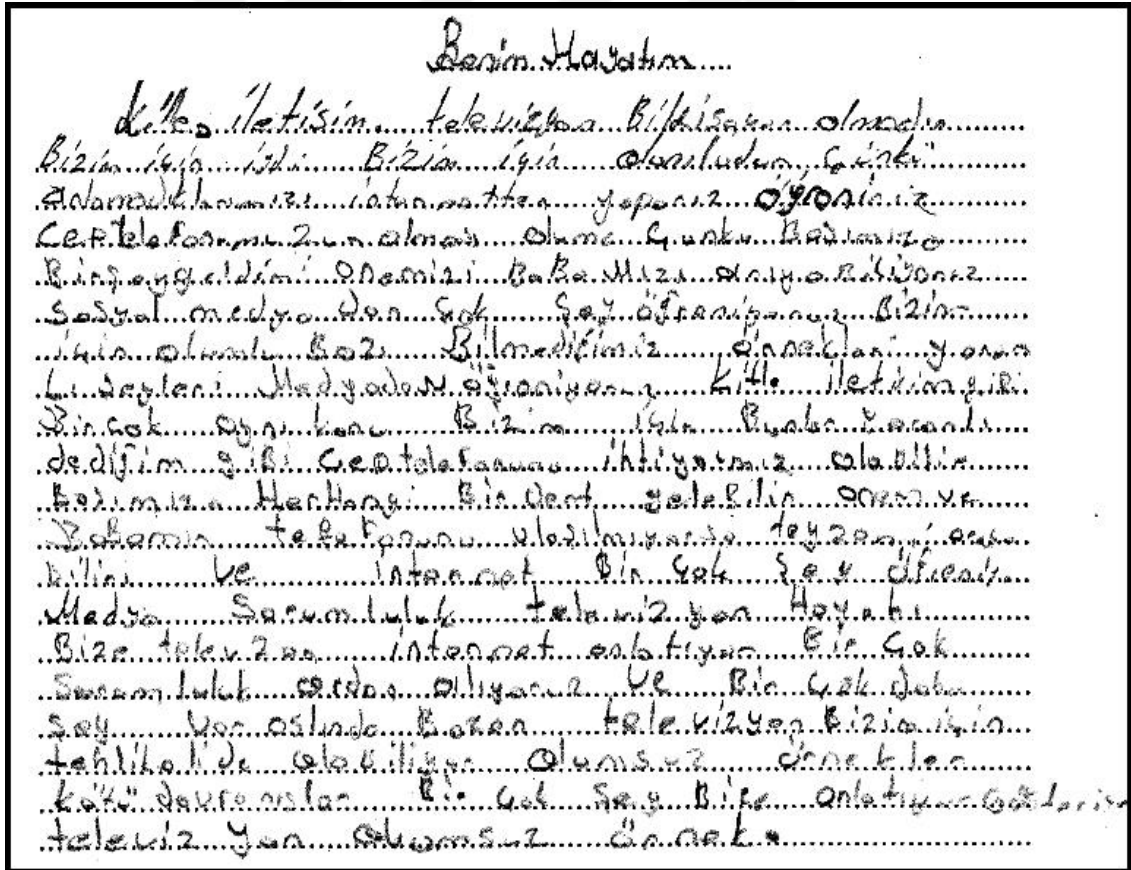 Benim Hayatım
Kitle iletisim televizyon Bilkisayar olmadın
Bizim için Bizim için Çünkü
internetten yaparız öğreniriz
Cep telefonumuzun olması olumlu Çunku Basımıza
Birşey geldimi Anemizi BaBaMızı arıyaBiliyoruz
Sosyal medya dan Çok Şey öğreniyoruz Bizim
için olumlu Bazı Bilmediğimiz örnekleri yarar
Lı Şeyleri Medyadan öğreniyoruz Kitle iletisim giBi
Bir çok aynı konu Bizim için Bunlar Yararlı
dediğim giBi Cep telefonuna ihtiyacımız olabilir
Basımıza HerHangi Bir dert geleBilir Anem ve
Babamın telefonunu teyzemi
bilir ve internet Bir Çok Şey
Medya Sorumluluk televizyon Hayatı
Bize televizon internet anlatıyor Bir Çok
Sorumluluk ordan alıyoruz ve Bir Çok daha
Sey Var aslında Bazen televizyon Bizim için
tehlikelide olabiliyor Olumsuz örnekler
kötü davranıslar Bir Çok Şey Bize anlatıyor
televiz yon olumsuz örnek.